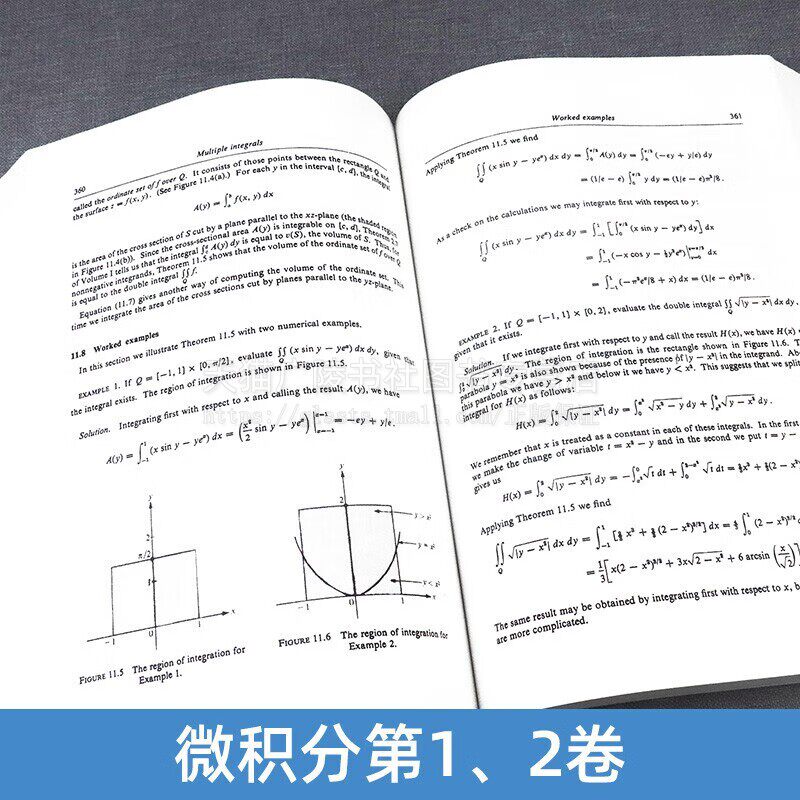 360
Multiple integrals
called the ordinate set of f over Q. It consists of those points between the rectangle Q and
the surface z = f(x, y). (See Figure 11.4(a).) For each y in the interval [c, d], the integral
A(y) = ∫ f(x, y) dx
is the area of the cross section of S cut by a plane parallel to the xz-plane (the shaded region
in Figure 11.4(b)). Since the cross-sectional area A(y) is integrable on [c, d], Theorem 2.7
of Volume I tells us that the integral ∫ A(y) dy is equal to v(S), the volume of S. Thus, for
nonnegative integrands, Theorem 11.5 shows that the volume of the ordinate set of f over Q
is equal to the double integral ∬ f.
Q
Equation (11.7) gives another way of computing the volume of the ordinate set. This
time we integrate the area of the cross sections cut by planes parallel to the yz-plane.
11.8 Worked examples
In this section we illustrate Theorem 11.5 with two numerical examples.
EXAMPLE 1. If Q = [−1, 1] × [0, π/2], evaluate ∬ (x sin y − yeˣ) dx dy, given that
Q
the integral exists. The region of integration is shown in Figure 11.5.
Solution. Integrating first with respect to x and calling the result A(y), we have
A(y) = ∫₋₁¹ (x sin y − yeˣ) dx = (x²/2 sin y − yeˣ)|ₓ₌₋₁ˣ⁼¹ = −ey + y/e.
y
π/2
1
−1
0
1
x
FIGURE 11.5 The region of integration for
Example 1.
y
2
y > x²
y = x²
y < x²
−1
0
1
x
FIGURE 11.6 The region of integration for
Example 2.
Worked examples
361
Applying Theorem 11.5 we find
∬ (x sin y − yeˣ) dx dy = ∫₀^{π/2} A(y) dy = ∫₀^{π/2} (−ey + y/e) dy
Q
= (1/e − e) ∫₀^{π/2} y dy = (1/e − e)π²/8.
As a check on the calculations we may integrate first with respect to y:
∬ (x sin y − yeˣ) dx dy = ∫₋₁¹ [∫₀^{π/2} (x sin y − yeˣ) dy] dx
Q
= ∫₋₁¹ (−x cos y − ½y²eˣ)|_{y=0}^{y=π/2} dx
= ∫₋₁¹ (−π²eˣ/8 + x) dx = (1/e − e)π²/8.
EXAMPLE 2. If Q = [−1, 1] × [0, 2], evaluate the double integral ∬ √|y − x²| dx dy,
Q
given that it exists.
Solution. If we integrate first with respect to y and call the result H(x), we have H(x)
∫₀² √|y − x²| dy. The region of integration is the rectangle shown in Figure 11.6. T
parabola y = x² is also shown because of the presence of |y − x²| in the integrand. Abo
this parabola we have y > x² and below it we have y < x². This suggests that we split
integral for H(x) as follows:
H(x) = ∫₀² √|y − x²| dy = ∫₀^{x²} √x² − y dy + ∫_{x²}² √y − x² dy.
We remember that x is treated as a constant in each of these integrals. In the first
we make the change of variable t = x² − y and in the second we put t = y −
gives us
H(x) = ∫₀² √|y − x²| dy = −∫_{x²}⁰ √t dt + ∫₀^{2−x²} √t dt = ⅔x³ + ⅔(2 − x²)
Applying Theorem 11.5 we find
∬ √|y − x²| dx dy = ∫₋₁¹ [⅔x³ + ⅔(2 − x²)^{3/2}] dx = 4/3 ∫₀¹ (2 − x²)^{3/2}
Q
= 1/3[x(2 − x²)^{3/2} + 3x√2 − x² + 6 arcsin (x/√2)]
The same result may be obtained by integrating first with respect to x, b
are more complicated.
微积分第1、2卷